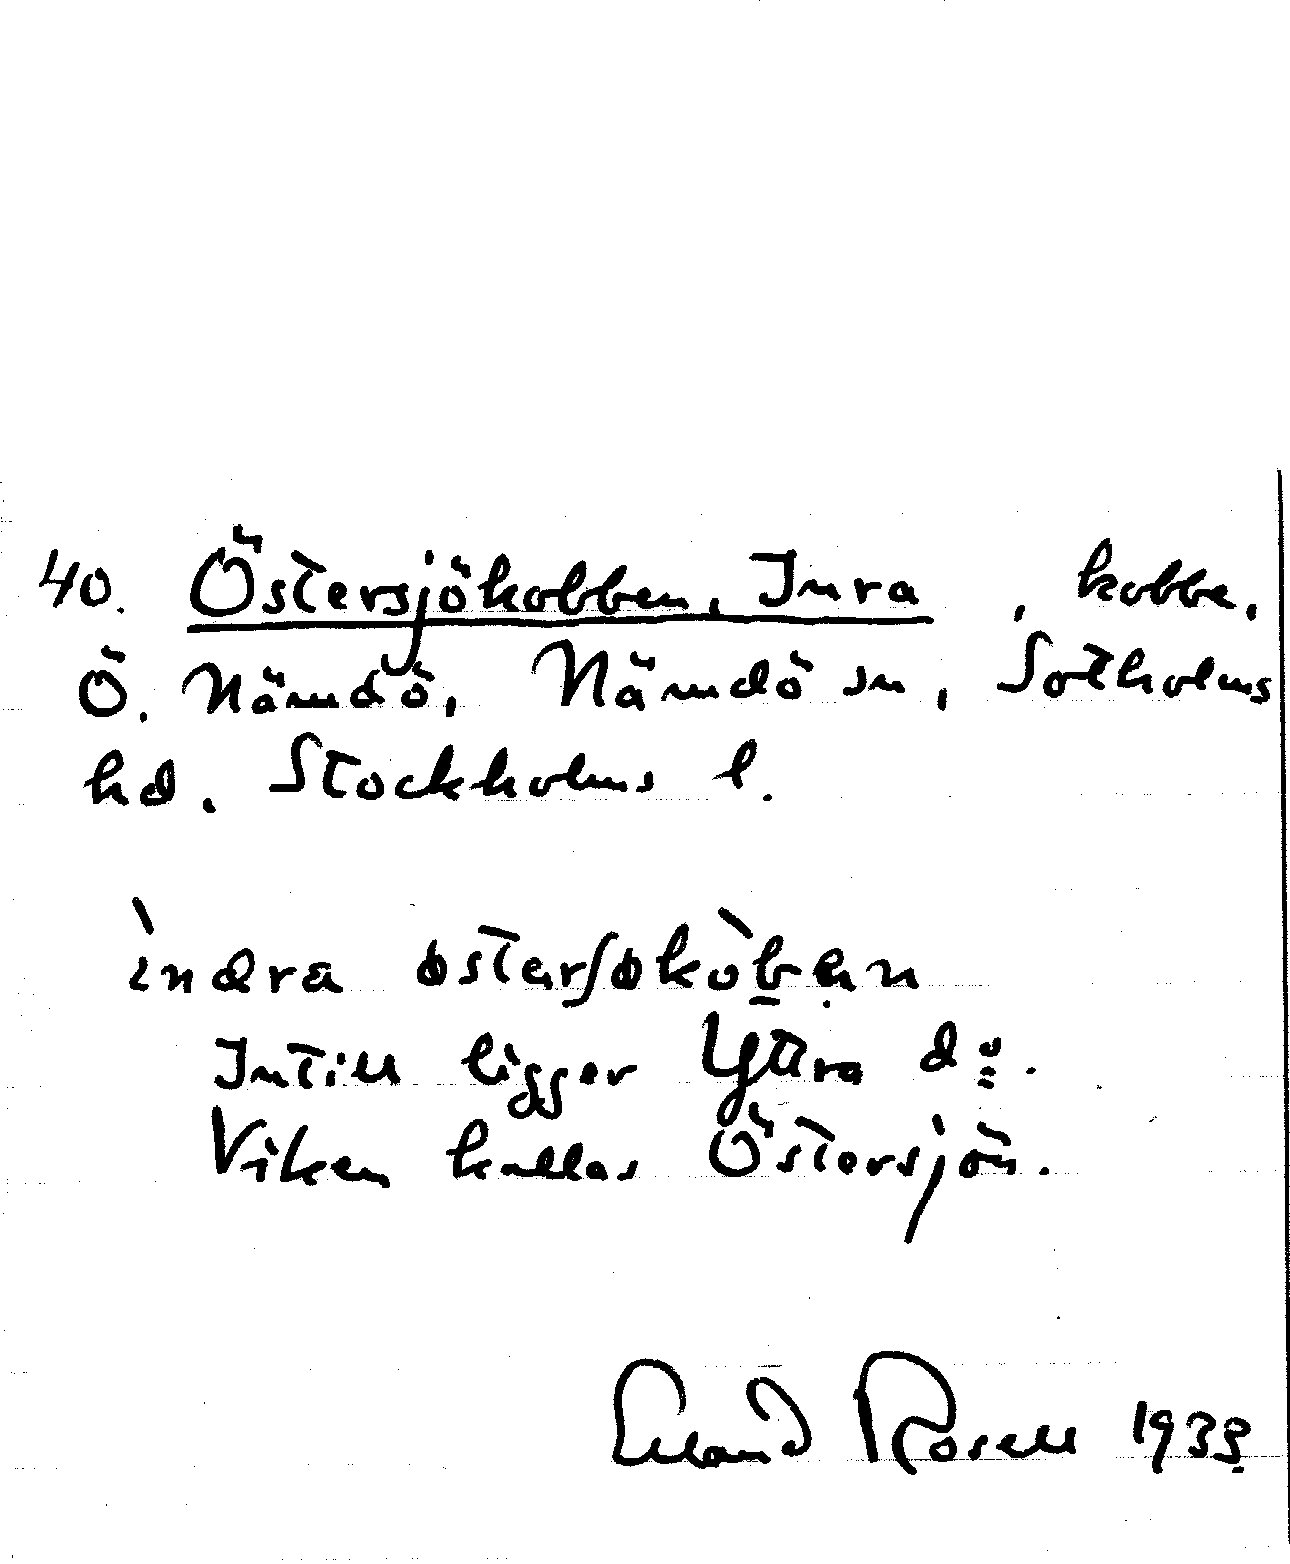 40. Östersjökobben, Inra, kobbe,
Ö. Nämdö, Nämdö sn, Sotholms
hd. Stockholms l.
ìndra østerʃøkòb̲ạn
Intill ligger Yttra d:o.
Viken kallas Östersjön.
Erland Rosell 1933.